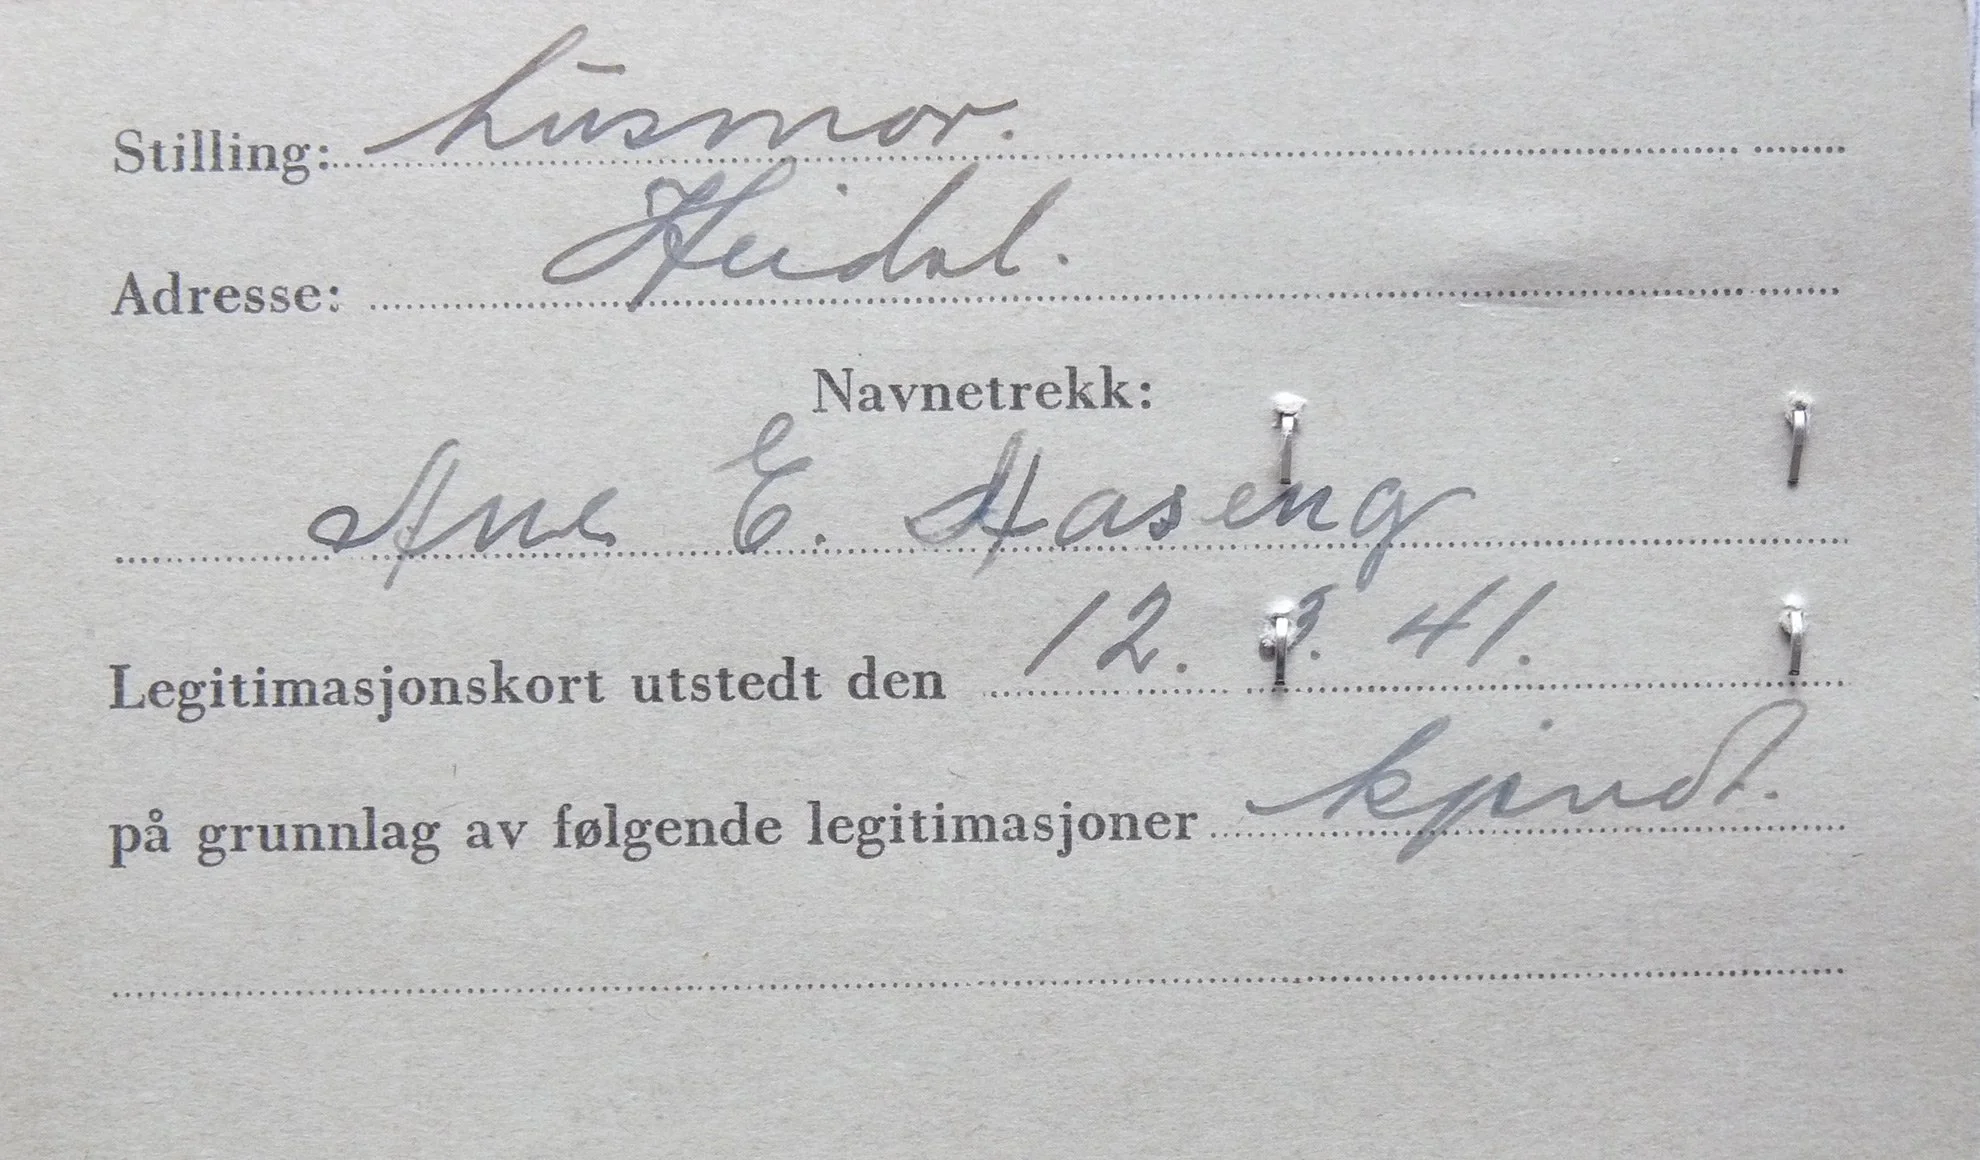 Stilling: husmor.
Adresse: Heidal.
Navnetrekk:
Ane E. Haseng
Legitimasjonskort utstedt den 12. 3. 41.
på grunnlag av følgende legitimasjoner kjendt.